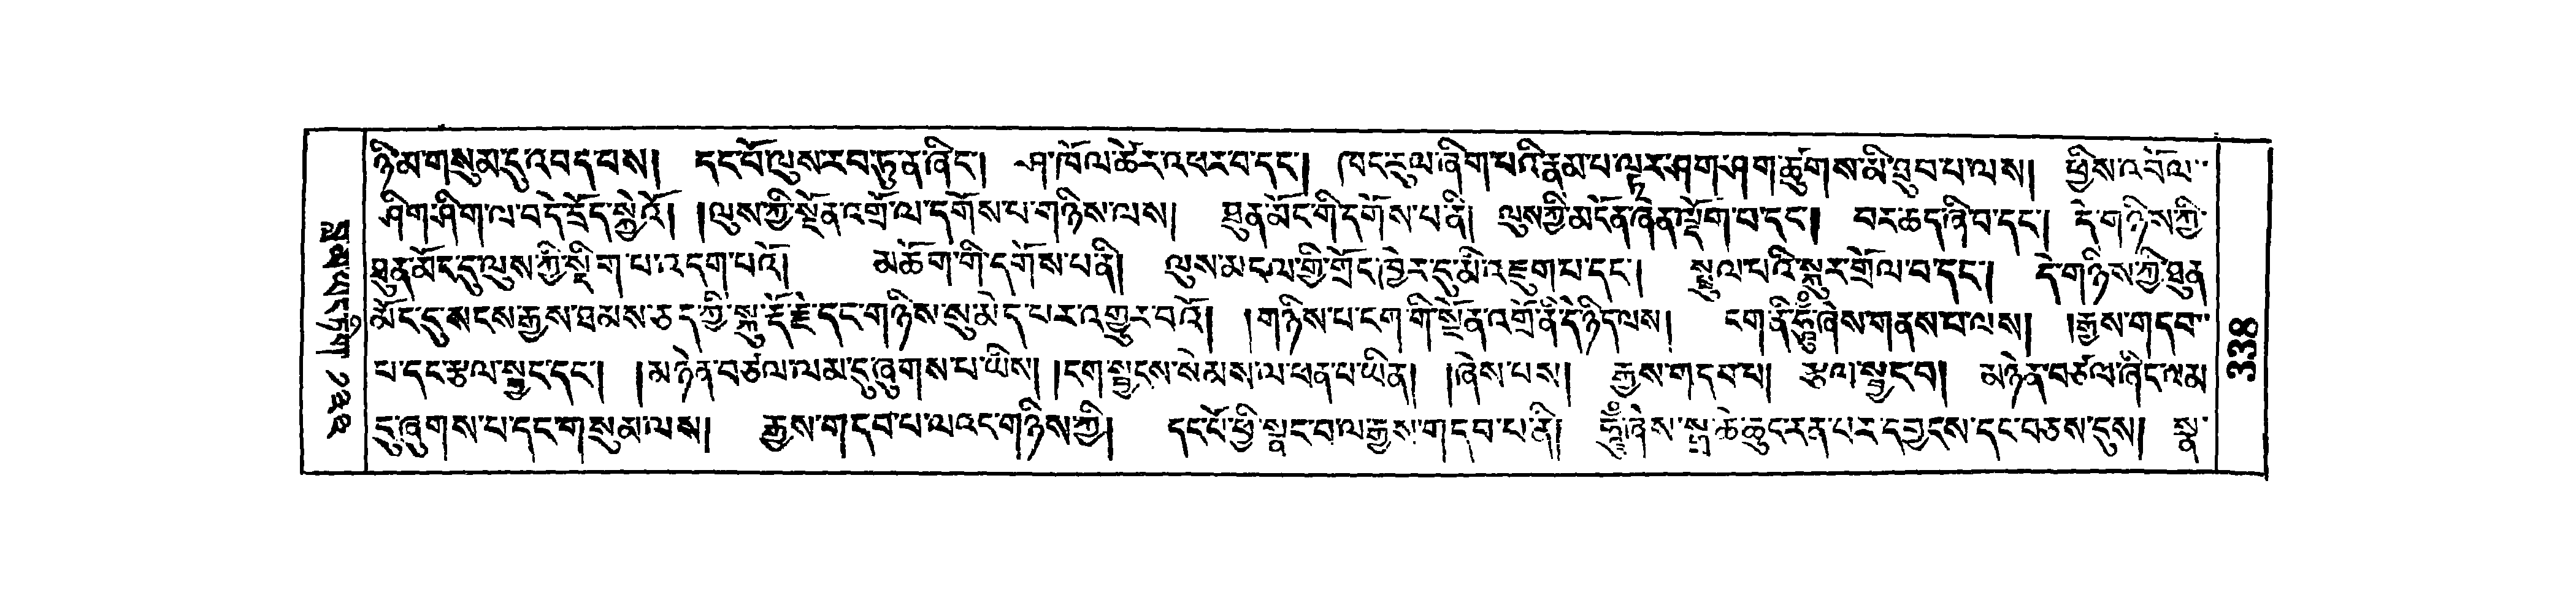 ཉི་མ་གསུམ་དུ་འབད་བས། དང་པོ་ལུས་རབ་ཏུ་ན་ཞིང་། ཤ་ཁོལ་ཚེར་འཕར་བ་དང་། ཁང་རུལ་ཞིག་པའི་རྣམ་པ་ལྟར་ཤག་ཤག་ཚུགས་མི་ཐུབ་པ་ལས། ཕྱིས་འབོལ་
ཤིག་ཤིག་ལ་བདེ་དྲོད་སྐྱེའོ། །ལུས་ཀྱི་སྔོན་འགྲོ་ལ་དགོས་པ་གཉིས་ལས། ཐུན་མོང་གི་དགོས་པ་ནི། ལུས་ཀྱི་མངོན་ཞེན་ལྡོག་པ་དང་། བར་ཆད་ཞི་བ་དང་། དེ་གཉིས་ཀྱི་
ཐུན་མོང་དུ་ལུས་ཀྱི་སྡིག་པ་འདག་པའོ། མཆོག་གི་དགོས་པ་ནི། ལུས་མངལ་གྱི་གྲོང་ཁྱེར་དུ་མི་འཇུག་པ་དང་། སྤྲུལ་པའི་སྐུར་གྲོལ་བ་དང་། དེ་གཉིས་ཀྱི་ཐུན་
མོང་དུ་སངས་རྒྱས་ཐམས་ཅད་ཀྱི་སྐུ་རྡོ་རྗེ་དང་གཉིས་སུ་མེད་པར་འགྱུར་བའོ། །གཉིས་པ་ངག་གི་སྔོན་འགྲོ་ནི་དེ་ཉིད་ལས། ངག་ནི་ཧཱུྃ་ཞེས་གནས་པ་ལས། །རྒྱས་གདབ་
པ་དང་རྩལ་སྦྱང་དང་། །མཉེན་བཙལ་ལམ་དུ་ཞུགས་པ་ཡིས། །ངག་སྦྱངས་སེམས་ལ་ཕན་པ་ཡིན། །ཞེས་པས། རྒྱས་གདབ་པ། རྩལ་སྦྱང་བ། མཉེན་བཙལ་ཞིང་ལམ་
དུ་ཞུགས་པ་དང་གསུམ་ལས། རྒྱས་གདབ་པ་ལའང་གཉིས་ཀྱི། དང་པོ་ཕྱི་སྣང་བ་ལ་རྒྱས་གདབ་པ་ནི། ཧཱུྃ་ཞེས་སྒྲ་ཆེ་ཆུང་རན་པར་དབྱངས་དང་བཅས་དུས། སྣ་